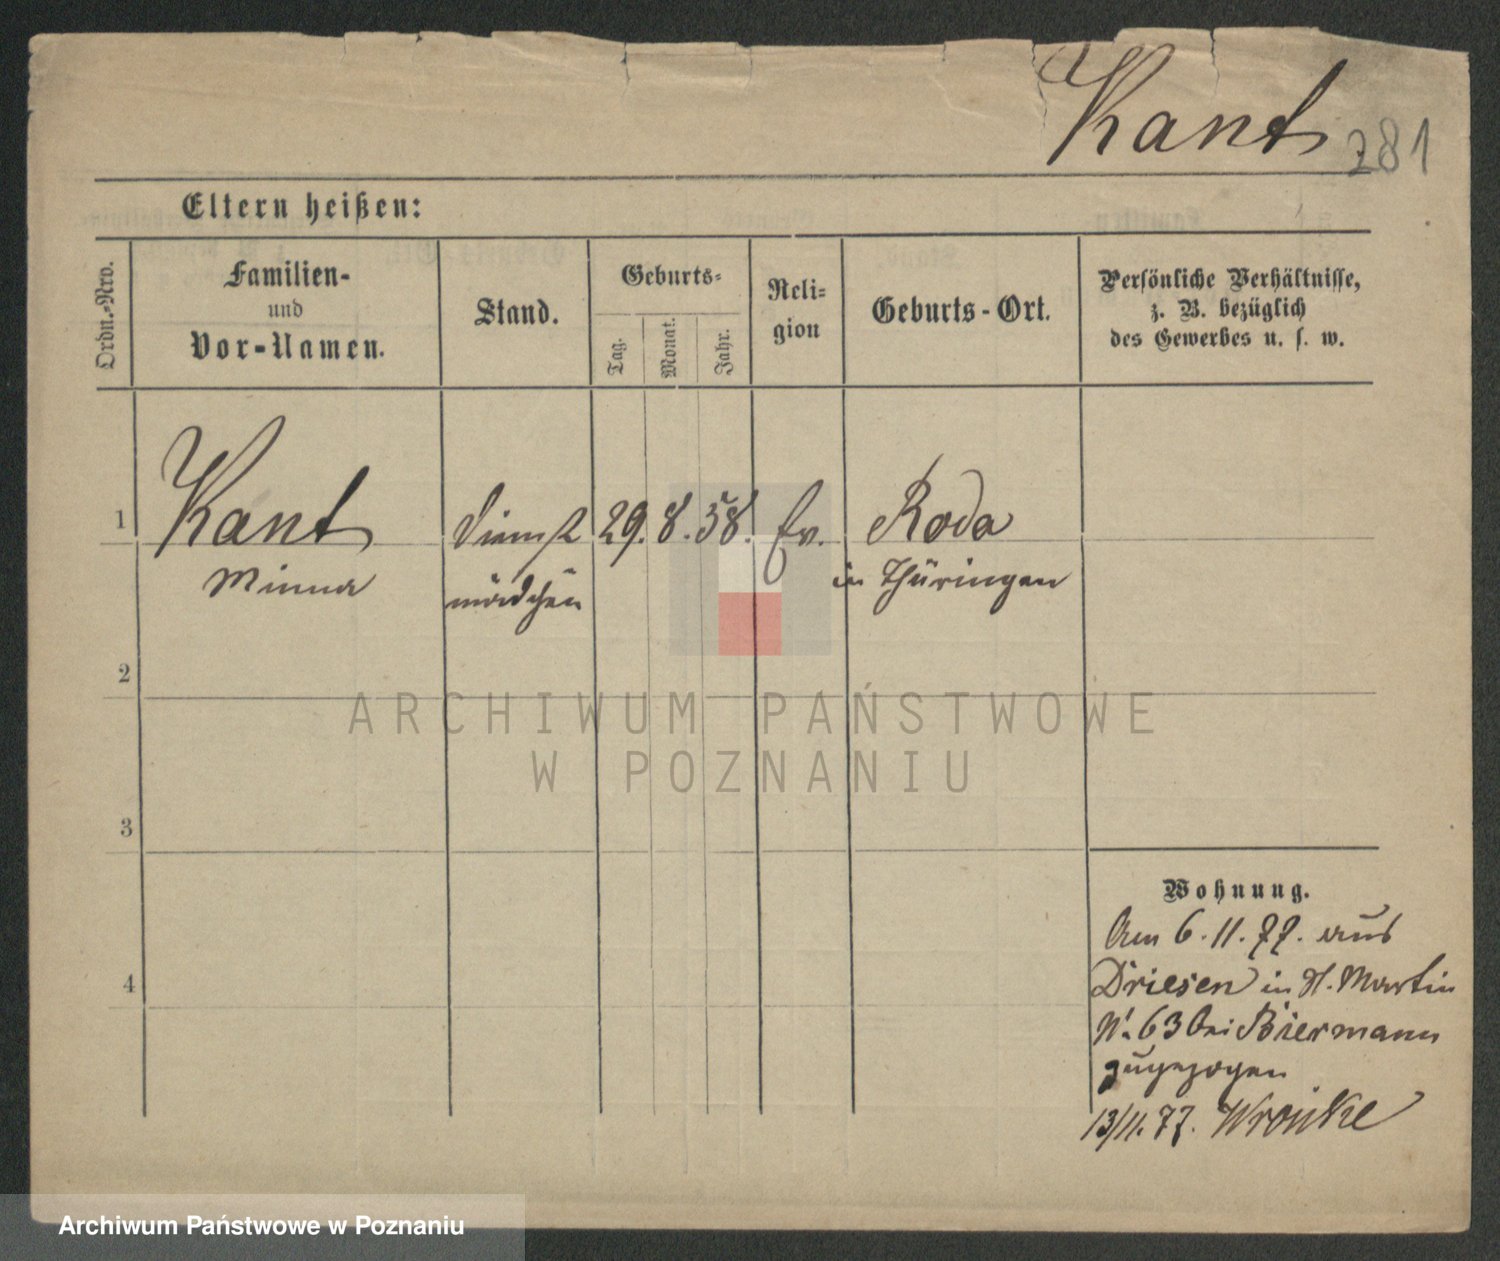 Kant
281
Eltern heißen:
Ordn.-Nro.
Familien-
und
Vor-Namen.
Stand.
Geburts-
Tag.
Monat.
Jahr.
Reli-
gion
Geburts-Ort.
Persönliche Verhältnisse,
z. B. bezüglich
des Gewerbes u. s. w.
1
Kant
Minna
Dienst
mädchen
29. 8. 58.
Ev.
Roda
in Thüringen
2
3
4
Wohnung.
Am 6. 11. 77. aus
Driesen in St. Martin
N. 63 bei Biermann
zugezogen
13/11. 77. Wronke
ARCHIWUM PAŃSTWOWE
W POZNANIU
Archiwum Państwowe w Poznaniu